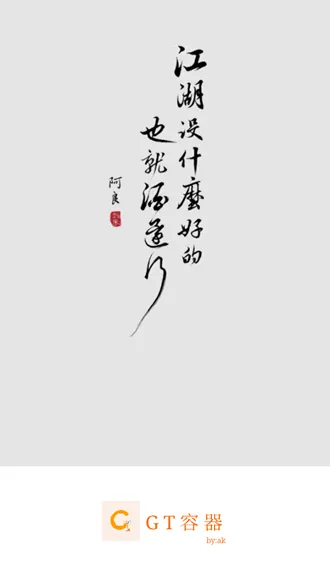 江湖没什麼好的
也就酒還行
阿良
GT容器
by:ak